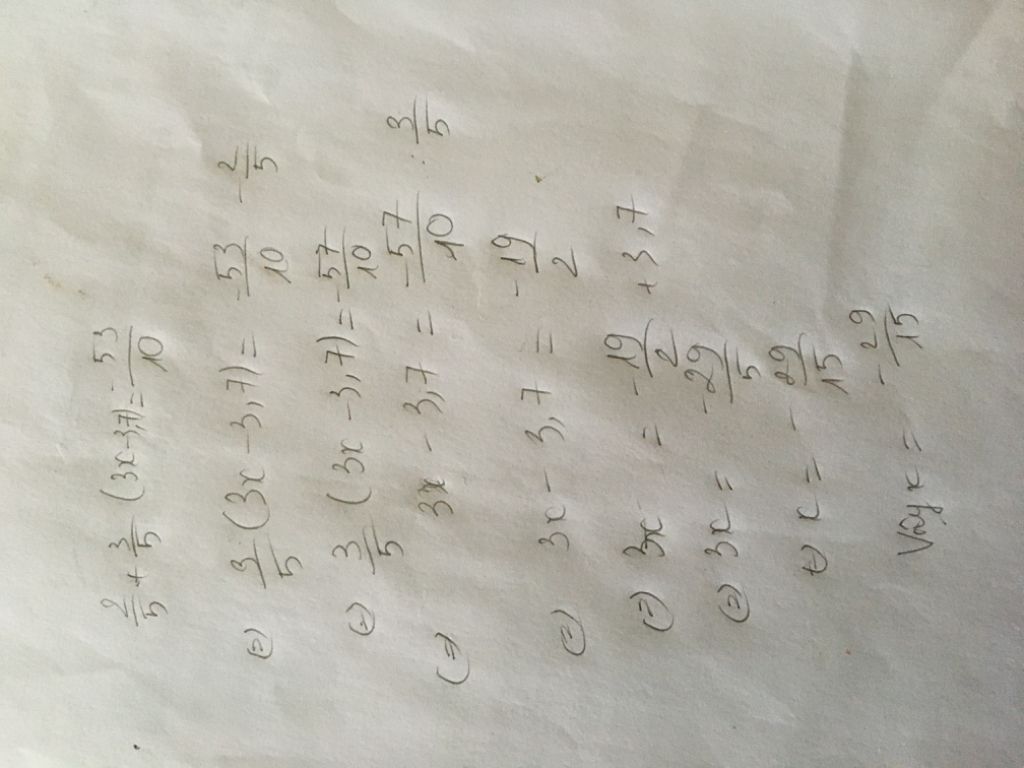 2/5 + 3/5 (3x-3,7) = -53/10
(=) 3/5 (3x - 3,7) = -53/10 - 2/5
(=) 3/5 (3x - 3,7) = -57/10
(=) 3x - 3,7 = -57/10 : 3/5
(=) 3x - 3,7 = -19/2
(=) 3x = -19/2 + 3,7
(=) 3x = -29/5
(=) x = -29/15
Vậy x = -29/15